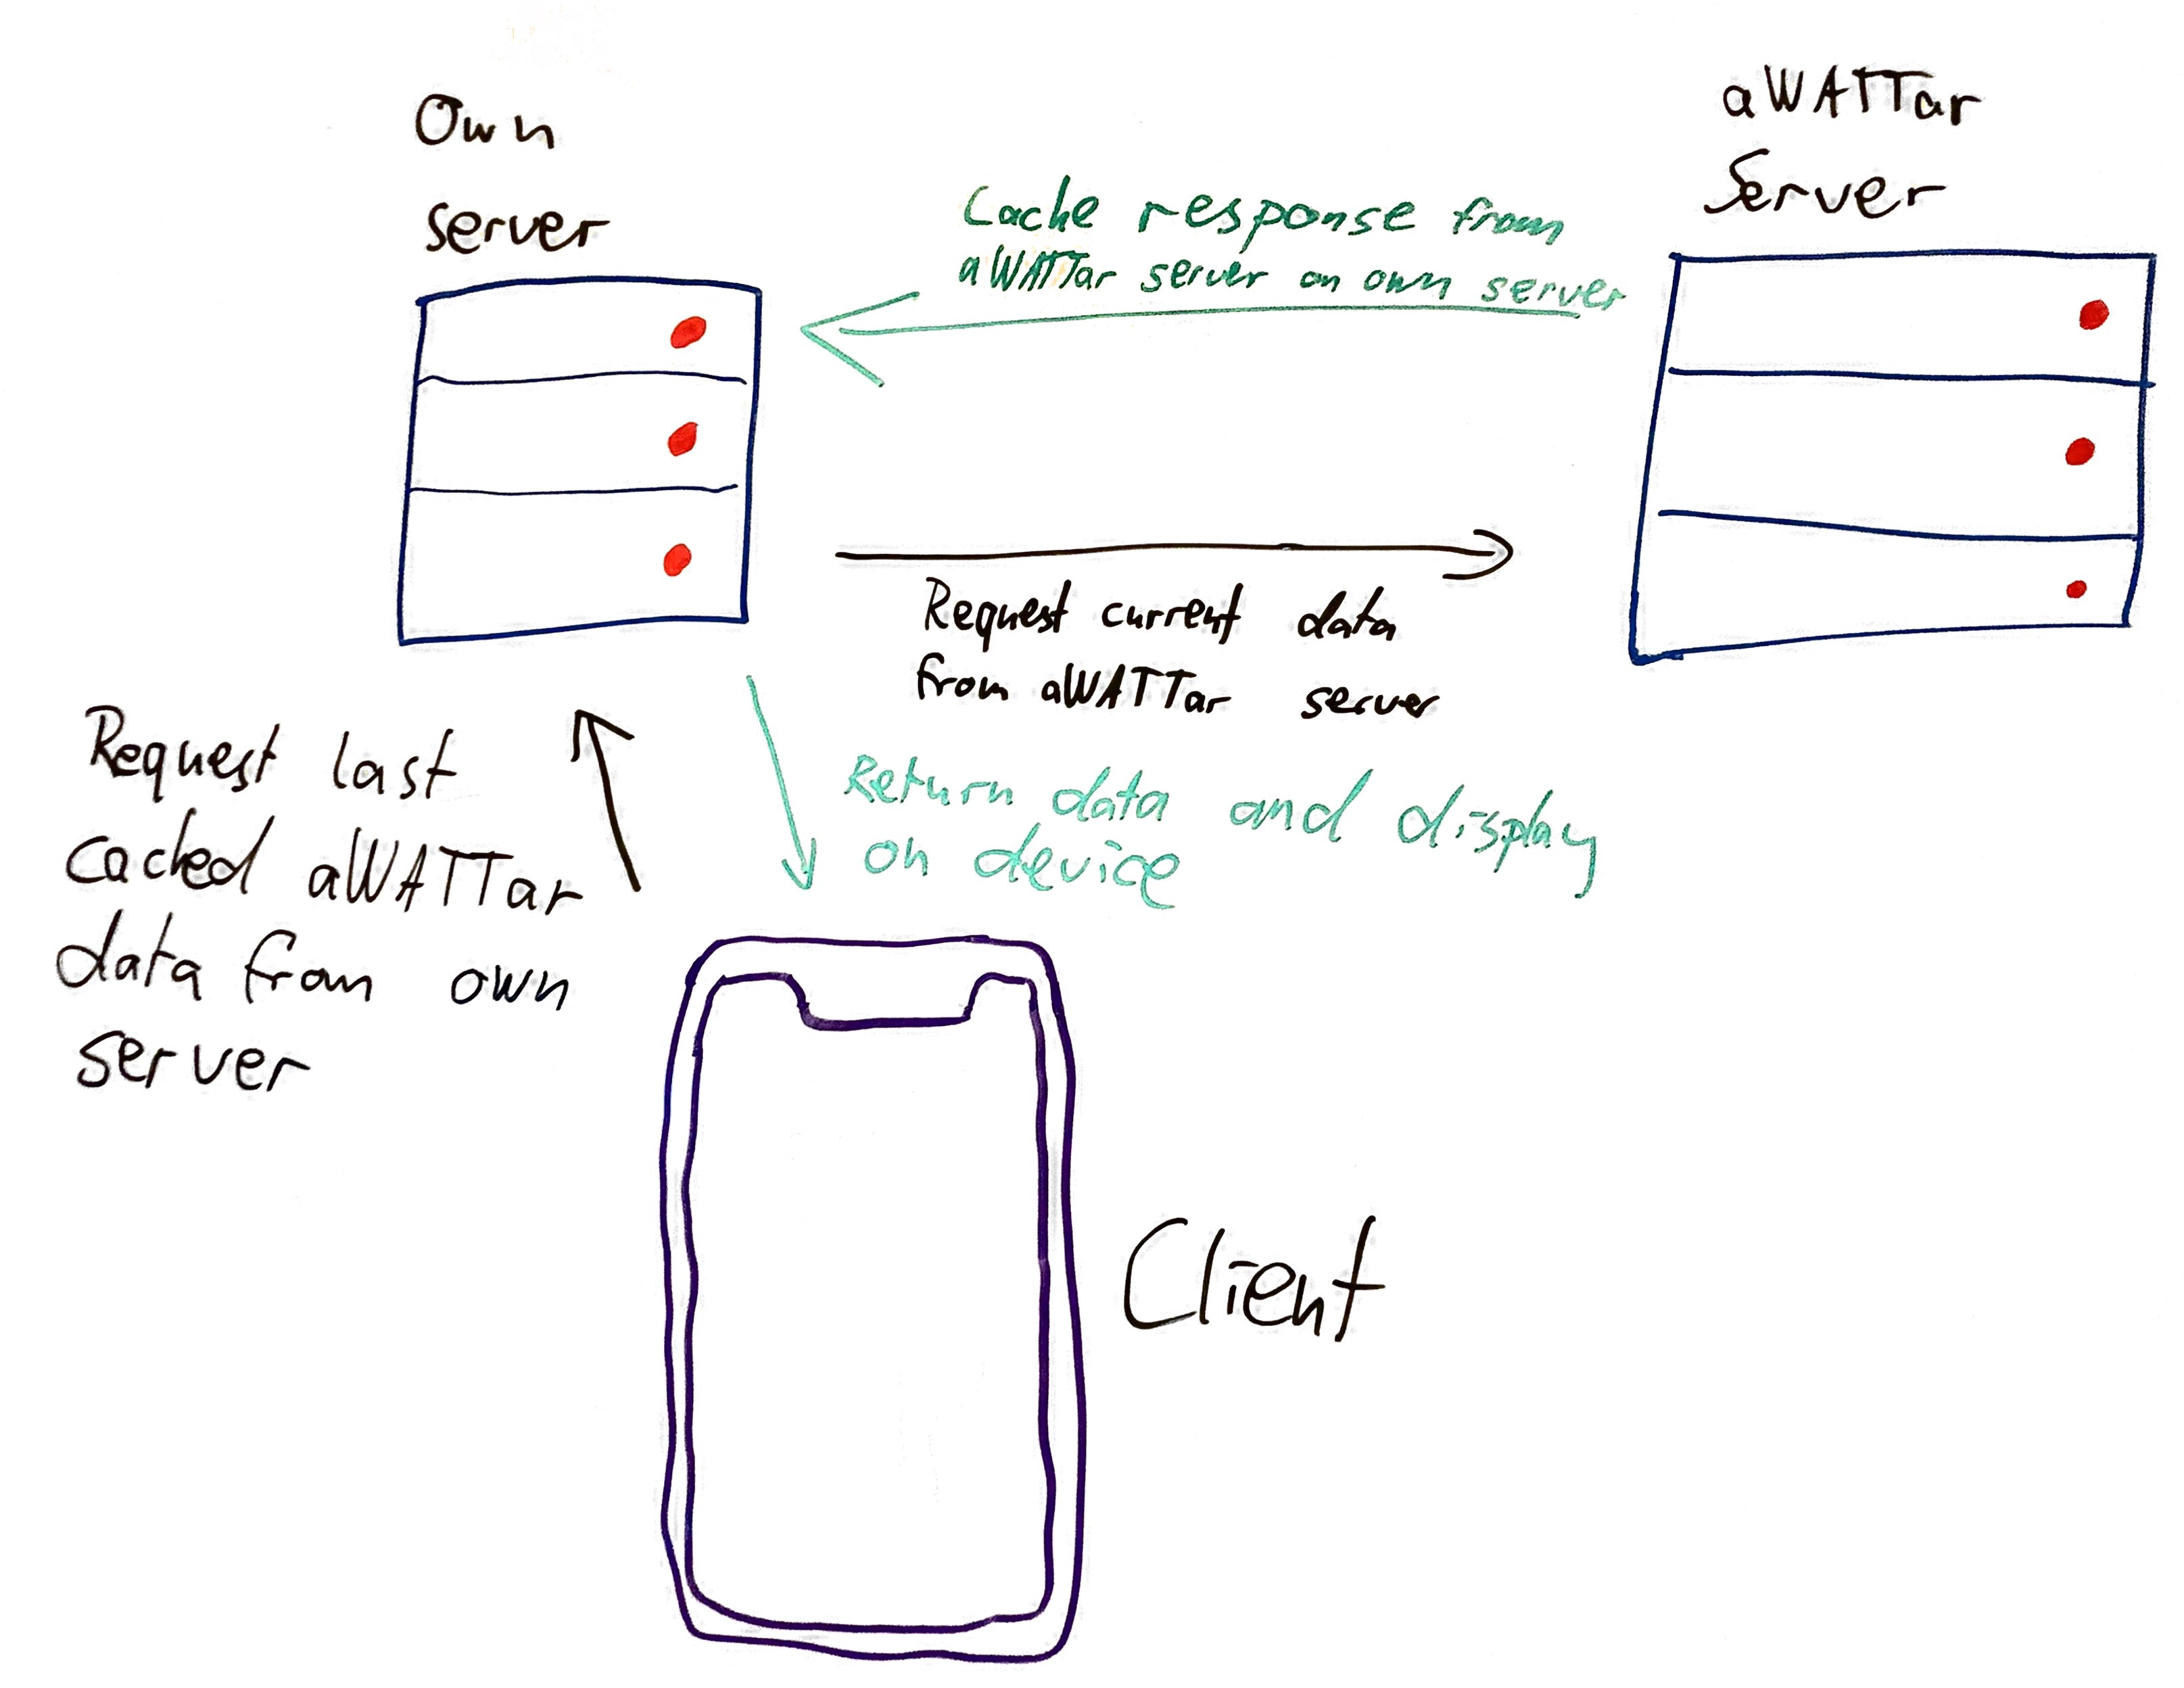 Own
server
aWATTar
Server
Cache response from
aWATTar server on own server
Request current data
from aWATTar server
Request last
cached aWATTar
data from own
server
Return data and display
on device
Client